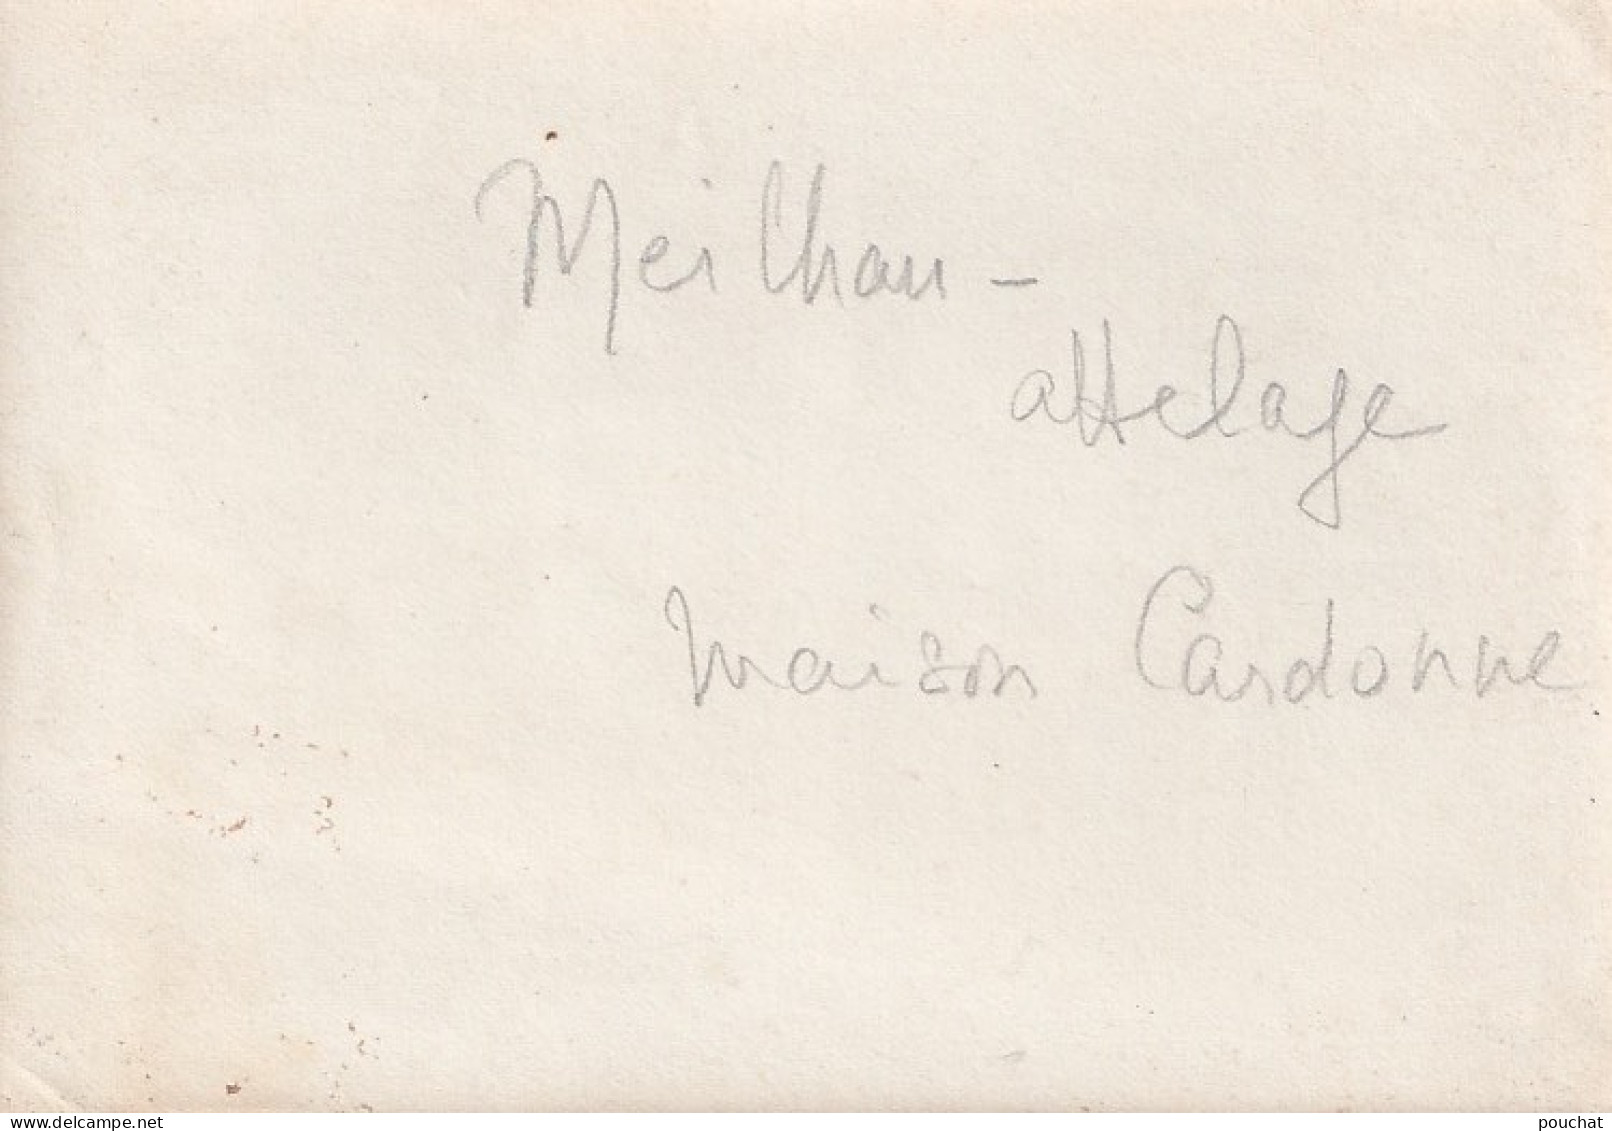 Meilhan -
attelage
maison Cardonne
www.delcampe.net
pouchat